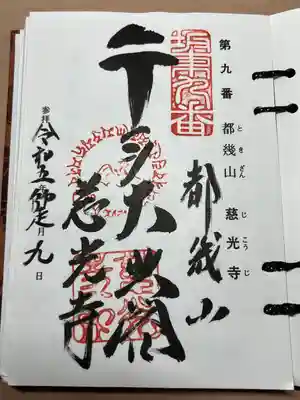 第九番 都幾山 慈光寺
ときざん じこうじ
坂東九番
都幾山
千手大悲閣
慈光寺
参拝 令和五年師走月九日